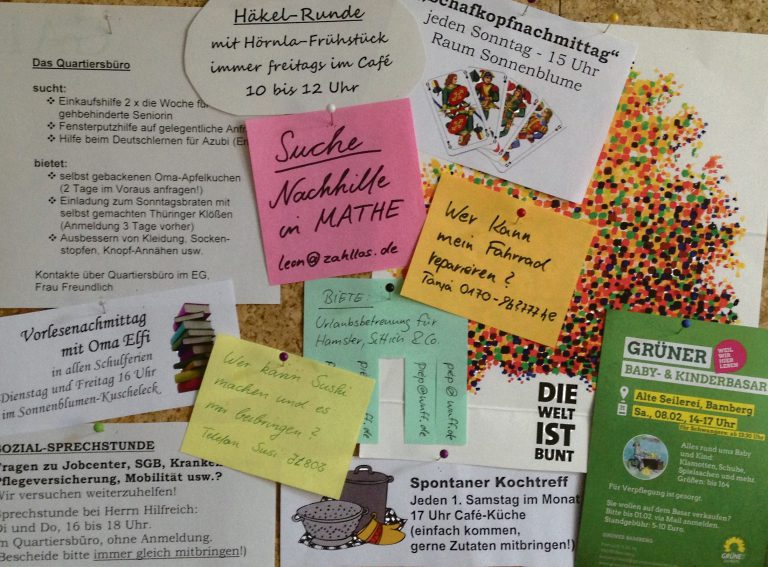 Das Quartiersbüro
sucht:
❖ Einkaufshilfe 2 x die Woche für
gehbehinderte Seniorin
❖ Fensterputzhilfe auf gelegentliche Anfr
❖ Hilfe beim Deutschlernen für Azubi (En
bietet:
❖ selbst gebackenen Oma-Apfelkuchen
(2 Tage im Voraus anfragen!)
❖ Einladung zum Sonntagsbraten mit
selbst gemachten Thüringer Klößen
(Anmeldung 3 Tage vorher)
❖ Ausbessern von Kleidung, Socken-
stopfen, Knopf-Annähen usw.
Kontakte über Quartiersbüro im EG,
Frau Freundlich
Häkel-Runde
mit Hörnla-Frühstück
immer freitags im Café
10 bis 12 Uhr
Schafkopfnachmittag“
jeden Sonntag - 15 Uhr
Raum Sonnenblume
Suche
Nachhilfe
in MATHE
leon@zahllos.de
Wer kann
mein Fahrrad
reparieren?
Tanja 0170-
BIETE:
Urlaubsbetreuung für
Hamster, Sittich & Co.
piep@wuff.de
piep@wuff.de
Vorlesenachmittag
mit Oma Elfi
in allen Schulferien
Dienstag und Freitag 16 Uhr
im Sonnenblumen-Kuscheleck
Wer kann Sushi
machen und es
mir beibringen?
Telefon Susi
DIE
WELT
IST
BUNT
GRÜNER
WEIL
WIR HIER
LEBEN
BABY- & KINDERBASAR
Alte Seilerei, Bamberg
Sa., 08.02, 14-17 Uhr
Für Schwangere: ab 13:30 Uhr
Alles rund ums Baby
und Kind:
Klamotten, Schuhe,
Spielsachen und mehr.
Größen: bis 164
Für Verpflegung ist gesorgt.
Sie wollen auf dem Basar verkaufen?
Bitte bis 01.02. via Mail anmelden.
Standgebühr: 5-10 Euro.
GRÜNES BAMBERG
GRÜNE
SOZIAL-SPRECHSTUNDE
Fragen zu Jobcenter, SGB, Kranken
Pflegeversicherung, Mobilität usw.?
Wir versuchen weiterzuhelfen!
Sprechstunde bei Herrn Hilfreich:
Di und Do, 16 bis 18 Uhr.
im Quartiersbüro, ohne Anmeldung.
(Bescheide bitte immer gleich mitbringen!)
Spontaner Kochtreff
Jeden 1. Samstag im Monat
17 Uhr Café-Küche
(einfach kommen,
gerne Zutaten mitbringen!)